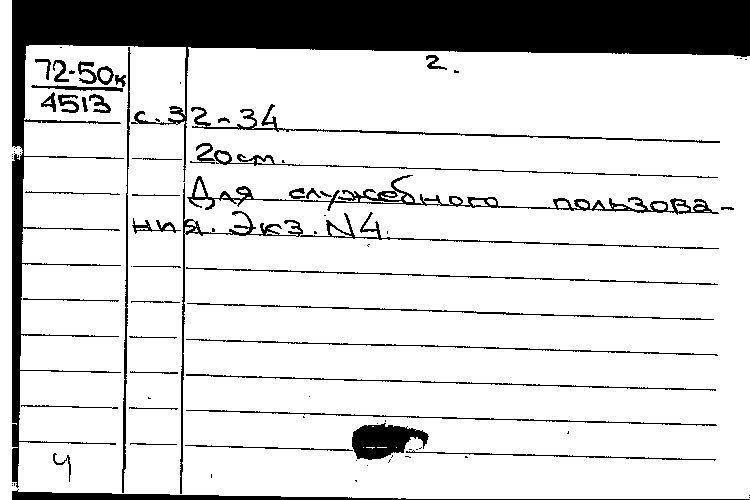 2.
72-50к
4513
с. 32-34
20 см.
Для служебного пользова-
ния. Экз. N4.
Ч